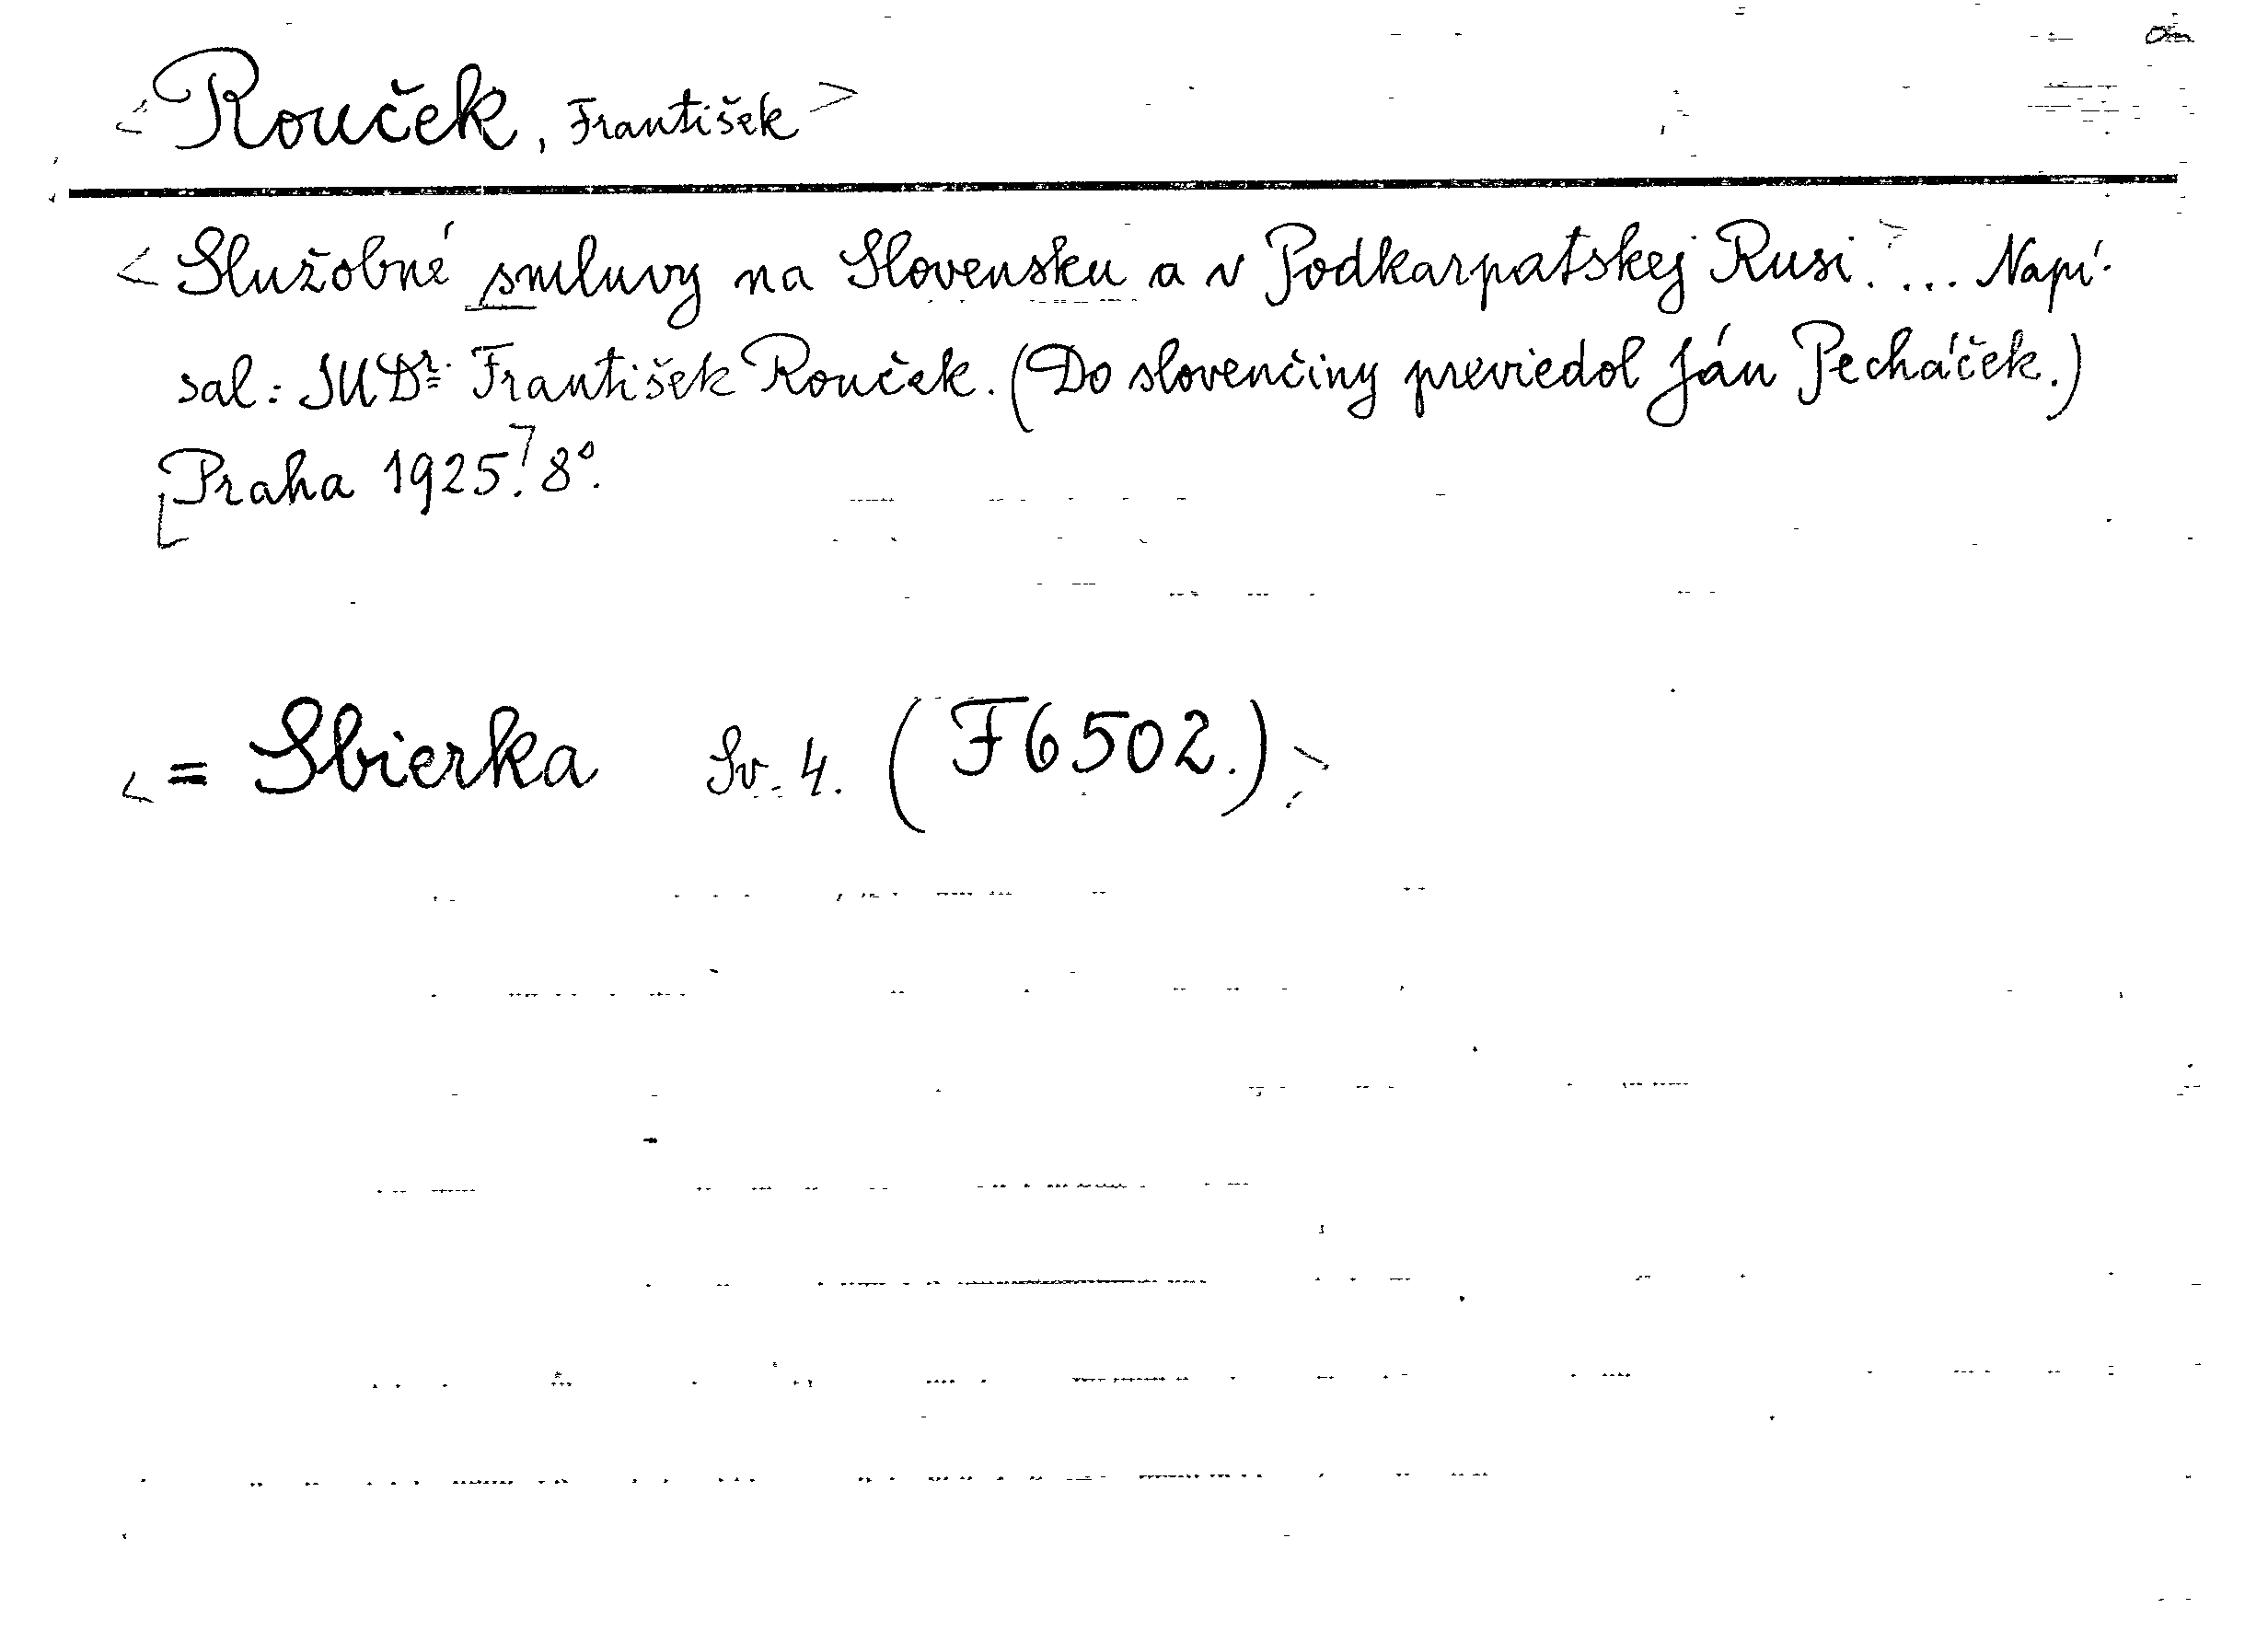 <Rouček, František>
<Služobné smluvy na Slovensku a v Podkarpatskej Rusi.> ... Napí-
sal: JUDr. František Rouček. (Do slovenčiny previedol Ján Pecháček.)
[Praha 1925.] 8°.
<= Sbierka Sv. 4. (F6502.)>